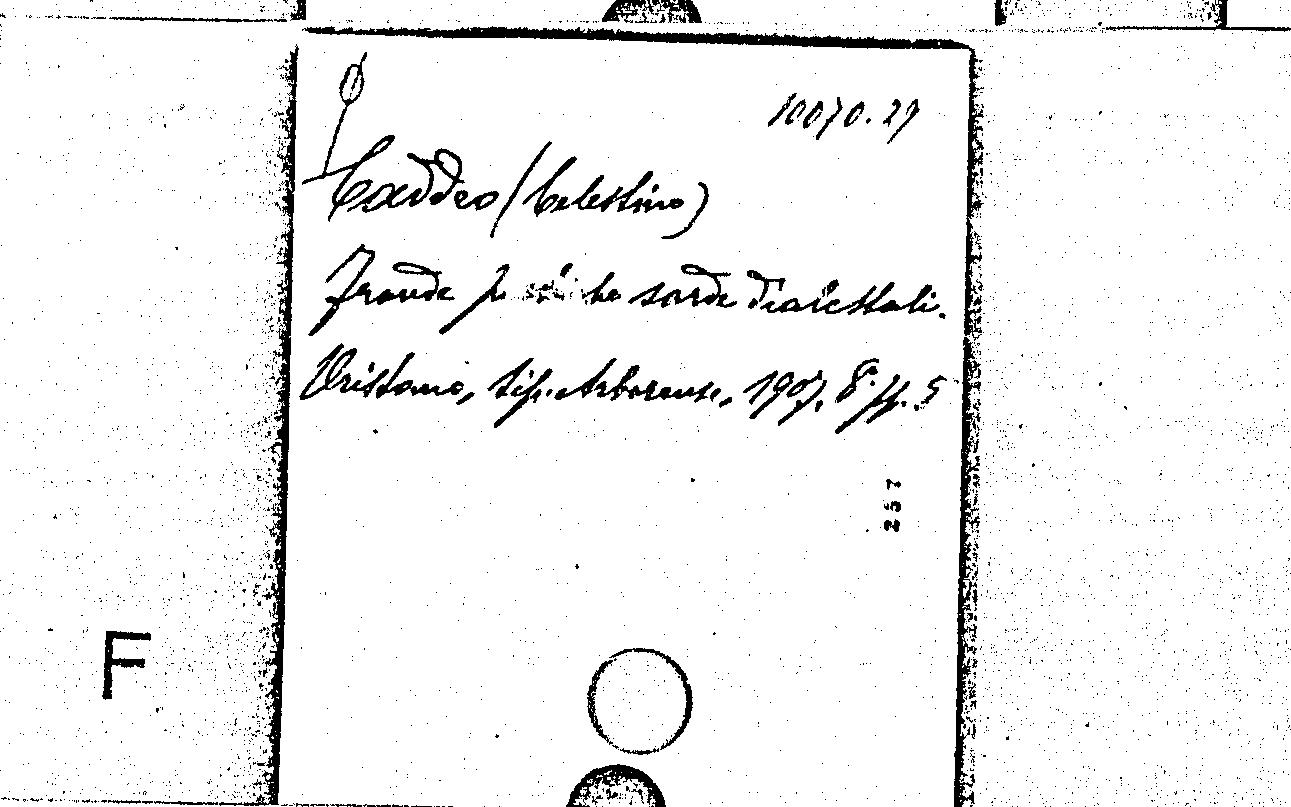 10070.29
Caddeo (Celestino)
Fronde sarde dialettali.
Oristano, tip. Arborense, 1907. 8º.
257
F